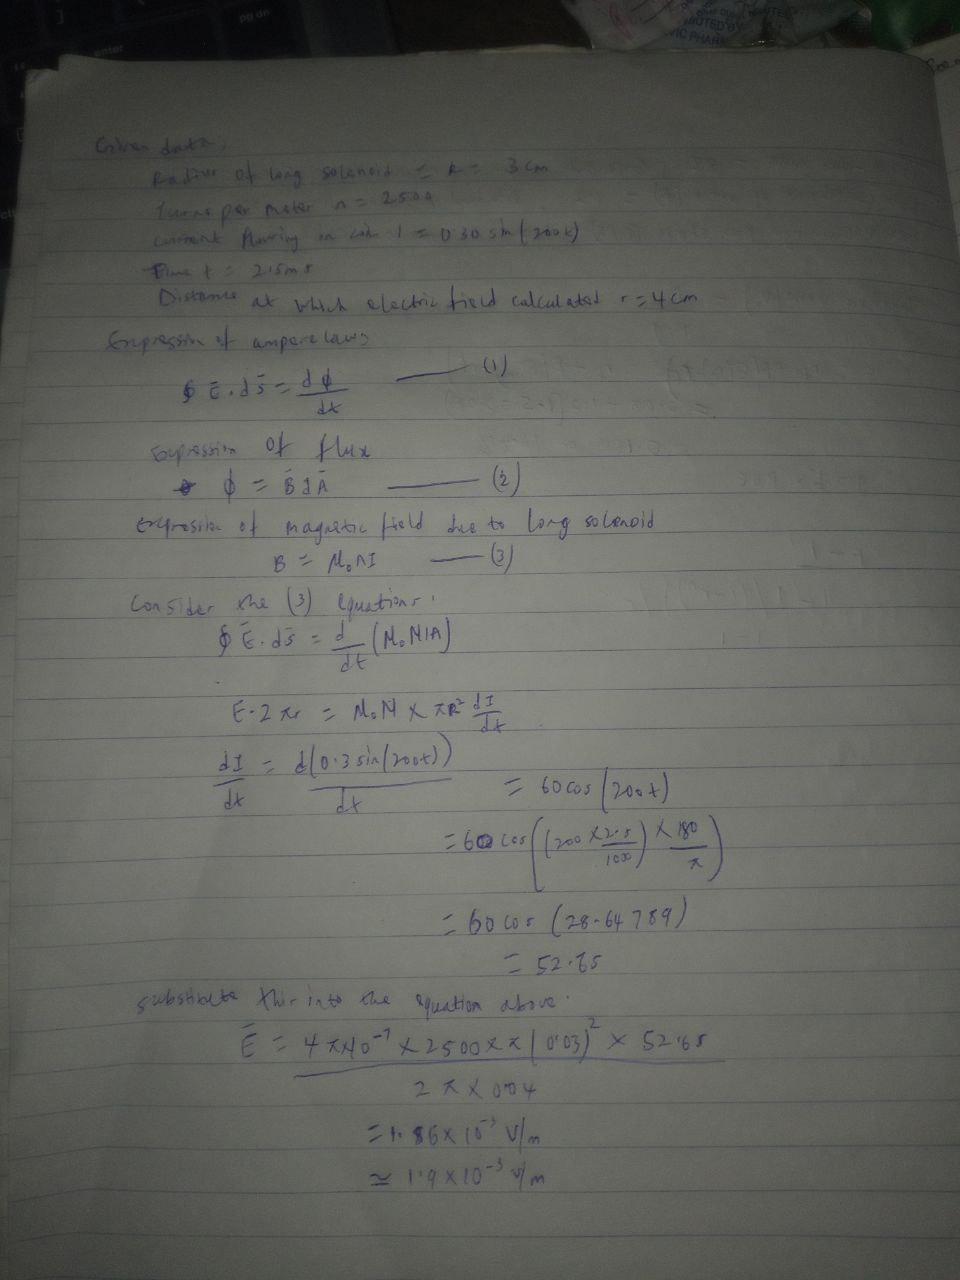 enter
pg dn
]
UTED BY
VIC PHAR
Given data,
Radius of long solenoid = R = 3cm
Turns per meter n = 2500
current flowing in coil I = 0.30 sin(200t)
Time t = 2.5ms
Distance at which electric field calculated r = 4cm
Expression of ampere laws
∮ Ē.ds̄ = dϕ/dt —— (1)
Expression of flux
ϕ = B̄dĀ —— (2)
expression of magnetic field due to long solenoid
B = M₀nI —— (3)
Consider the (3) equations.
∮ Ē.ds̄ = d/dt (M₀NIA)
E.2πr = M₀N × πR² dI/dt
dI/dt = d(0.3sin(200t))/dt
= 60cos(200t)
= 60 cos((200 × 2.5/1000) × 180/π)
= 60 cos (28.64789)
= 52.65
substitute this into the equation above.
Ē = 4π×10⁻⁷ × 2500 × π(0.03)² × 52.65 / 2π × 0.04
= 1.86×10⁻³ V/m
≃ 1.9×10⁻³ V/m